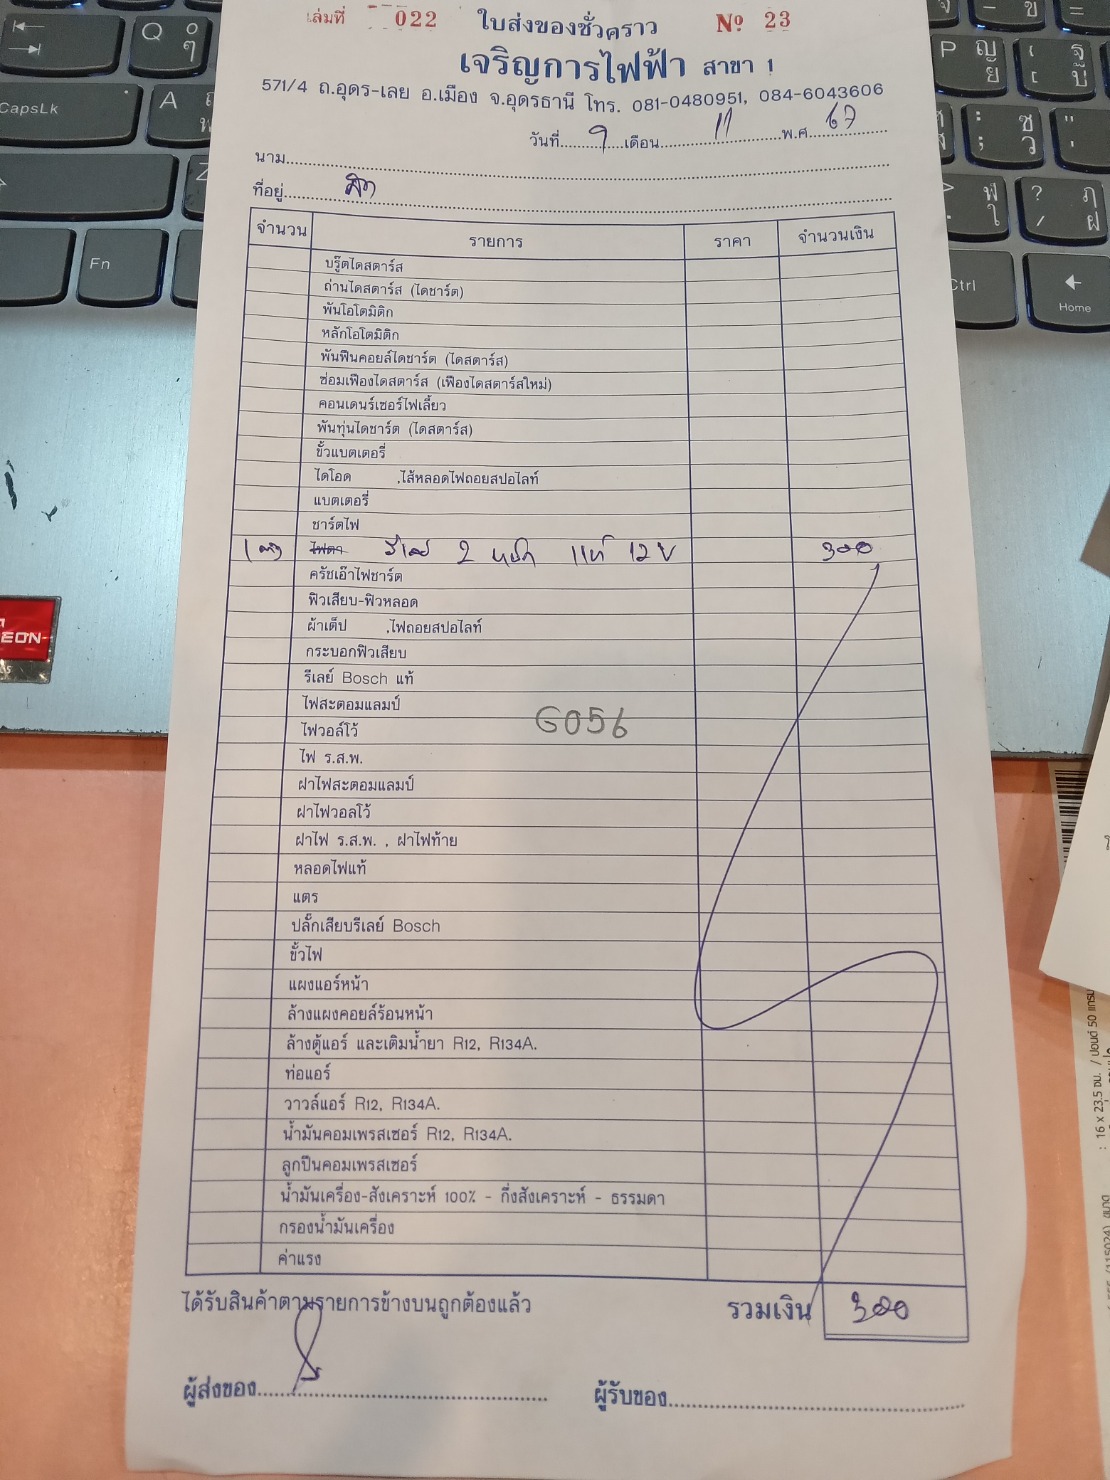 เล่มที่ 022 ใบส่งของชั่วคราว Nº 23
เจริญการไฟฟ้า สาขา 1
571/4 ถ.อุดร-เลย อ.เมือง จ.อุดรธานี โทร. 081-0480951, 084-6043606
วันที่ 9 เดือน 11 พ.ศ. 67
นาม
ที่อยู่
จำนวน รายการ ราคา จำนวนเงิน
บรู๊ดไดสตาร์ส
ถ่านไดสตาร์ส (ไดชาร์ต)
พันโอโตมิติก
หลักโอโตมิติก
พันฟินคอยล์ไดชาร์ต (ไดสตาร์ส)
ซ่อมเฟืองไดสตาร์ส (เฟืองไดสตาร์สใหม่)
คอนเดนร์เซอร์ไฟเลี้ยว
พันทุ่นไดชาร์ต (ไดสตาร์ส)
ขั้วแบตเตอรี่
ไดโอด ,ไส้หลอดไฟถอยสปอไลท์
แบตเตอรี่
ชาร์ตไฟ
1 ไฟตา รีเลย์ 2 หลัก แท้ 12 V 300
ครัชเอ๊าไฟชาร์ต
ฟิวเสียบ-ฟิวหลอด
ผ้าเต็ป ,ไฟถอยสปอไลท์
กระบอกฟิวเสียบ
รีเลย์ Bosch แท้
ไฟสะตอมแลมป์
G056
ไฟวอล์โว้
ไฟ ร.ส.พ.
ฝาไฟสะตอมแลมป์
ฝาไฟวอลโว้
ฝาไฟ ร.ส.พ. , ฝาไฟท้าย
หลอดไฟแท้
แตร
ปลั๊กเสียบรีเลย์ Bosch
ขั้วไฟ
แผงแอร์หน้า
ล้างแผงคอยล์ร้อนหน้า
ล้างตู้แอร์ และเติมน้ำยา R12, R134A.
ท่อแอร์
วาวล์แอร์ R12, R134A.
น้ำมันคอมเพรสเซอร์ R12, R134A.
ลูกปืนคอมเพรสเซอร์
น้ำมันเครื่อง-สังเคราะห์ 100% - กึ่งสังเคราะห์ - ธรรมดา
กรองน้ำมันเครื่อง
ค่าแรง
ได้รับสินค้าตามรายการข้างบนถูกต้องแล้ว รวมเงิน 300
ผู้ส่งของ ผู้รับของ
CapsLk
Q
A
Z
Fn
P
Ctrl
Home
EON
: 16 x 23.5 ซม. / ปอนด์ 50 แกรม